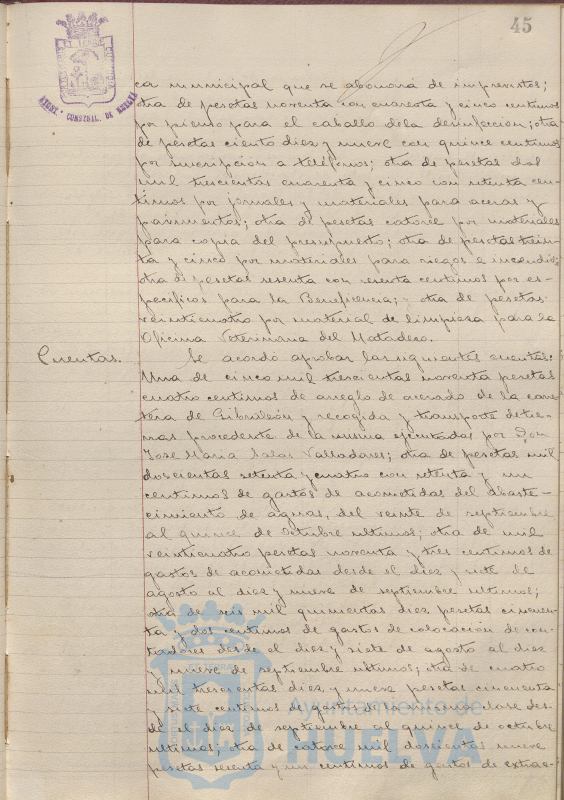 45
AYUNT. CONSTNAL. DE HUELVA
ca municipal que se abonará de imprevistos;
otra de pesetas noventa con cuarenta y cinco centimos
por pienso para el caballo de la desinfeccion; otra
de pesetas ciento diez y nueve con quince centimos
por suscripcion a telefonos; otra de pesetas dos
mil trescientas cuarenta y cinco con setenta cen-
timos por jornales y materiales para aceras y
pavimentos; otra de pesetas catorce por materiales
para copia del presupuesto; otra de pesetas trein-
ta y cinco por materiales para riegos e incendios;
otra de pesetas sesenta con sesenta centimos por es-
pecificos para la Beneficencia; y otra de pesetas
veinticuatro por material de limpieza para la
Oficina Veterinaria del Matadero.
Cuentas. Se acordó aprobar las siguientes cuentas:
Una de cinco mil trescientas noventa pesetas
cuatro centimos de arreglo de acerado de la carre-
tera de Gibraleón y recogida y transporte de tie-
rras procedente de la misma ejecutadas por Don
José Maria Salas Valladares; otra de pesetas mil
doscientas setenta y cuatro con setenta y un
centimos de gastos de acometidas del abaste-
cimiento de aguas, del veinte de septiembre
al quince de octubre ultimos; otra de mil
veinticuatro pesetas noventa y tres centimos de
gastos de acometidas desde el diez y siete de
agosto al diez y nueve de septiembre ultimos;
otra de seis mil quinientas diez pesetas cincuen-
ta y dos centimos de gastos de colocacion de con-
tadores desde el diez y siete de agosto al diez
y nueve de septiembre ultimos; otra de cuatro
mil trescientas diez y nueve pesetas cincuenta
y siete centimos de gastos de la misma clase des-
de el diez de septiembre al quince de octubre
ultimos; otra de catorce mil doscientas nueve
pesetas sesenta y un centimos de gastos de extrac-
Ayuntamiento de
HUELVA